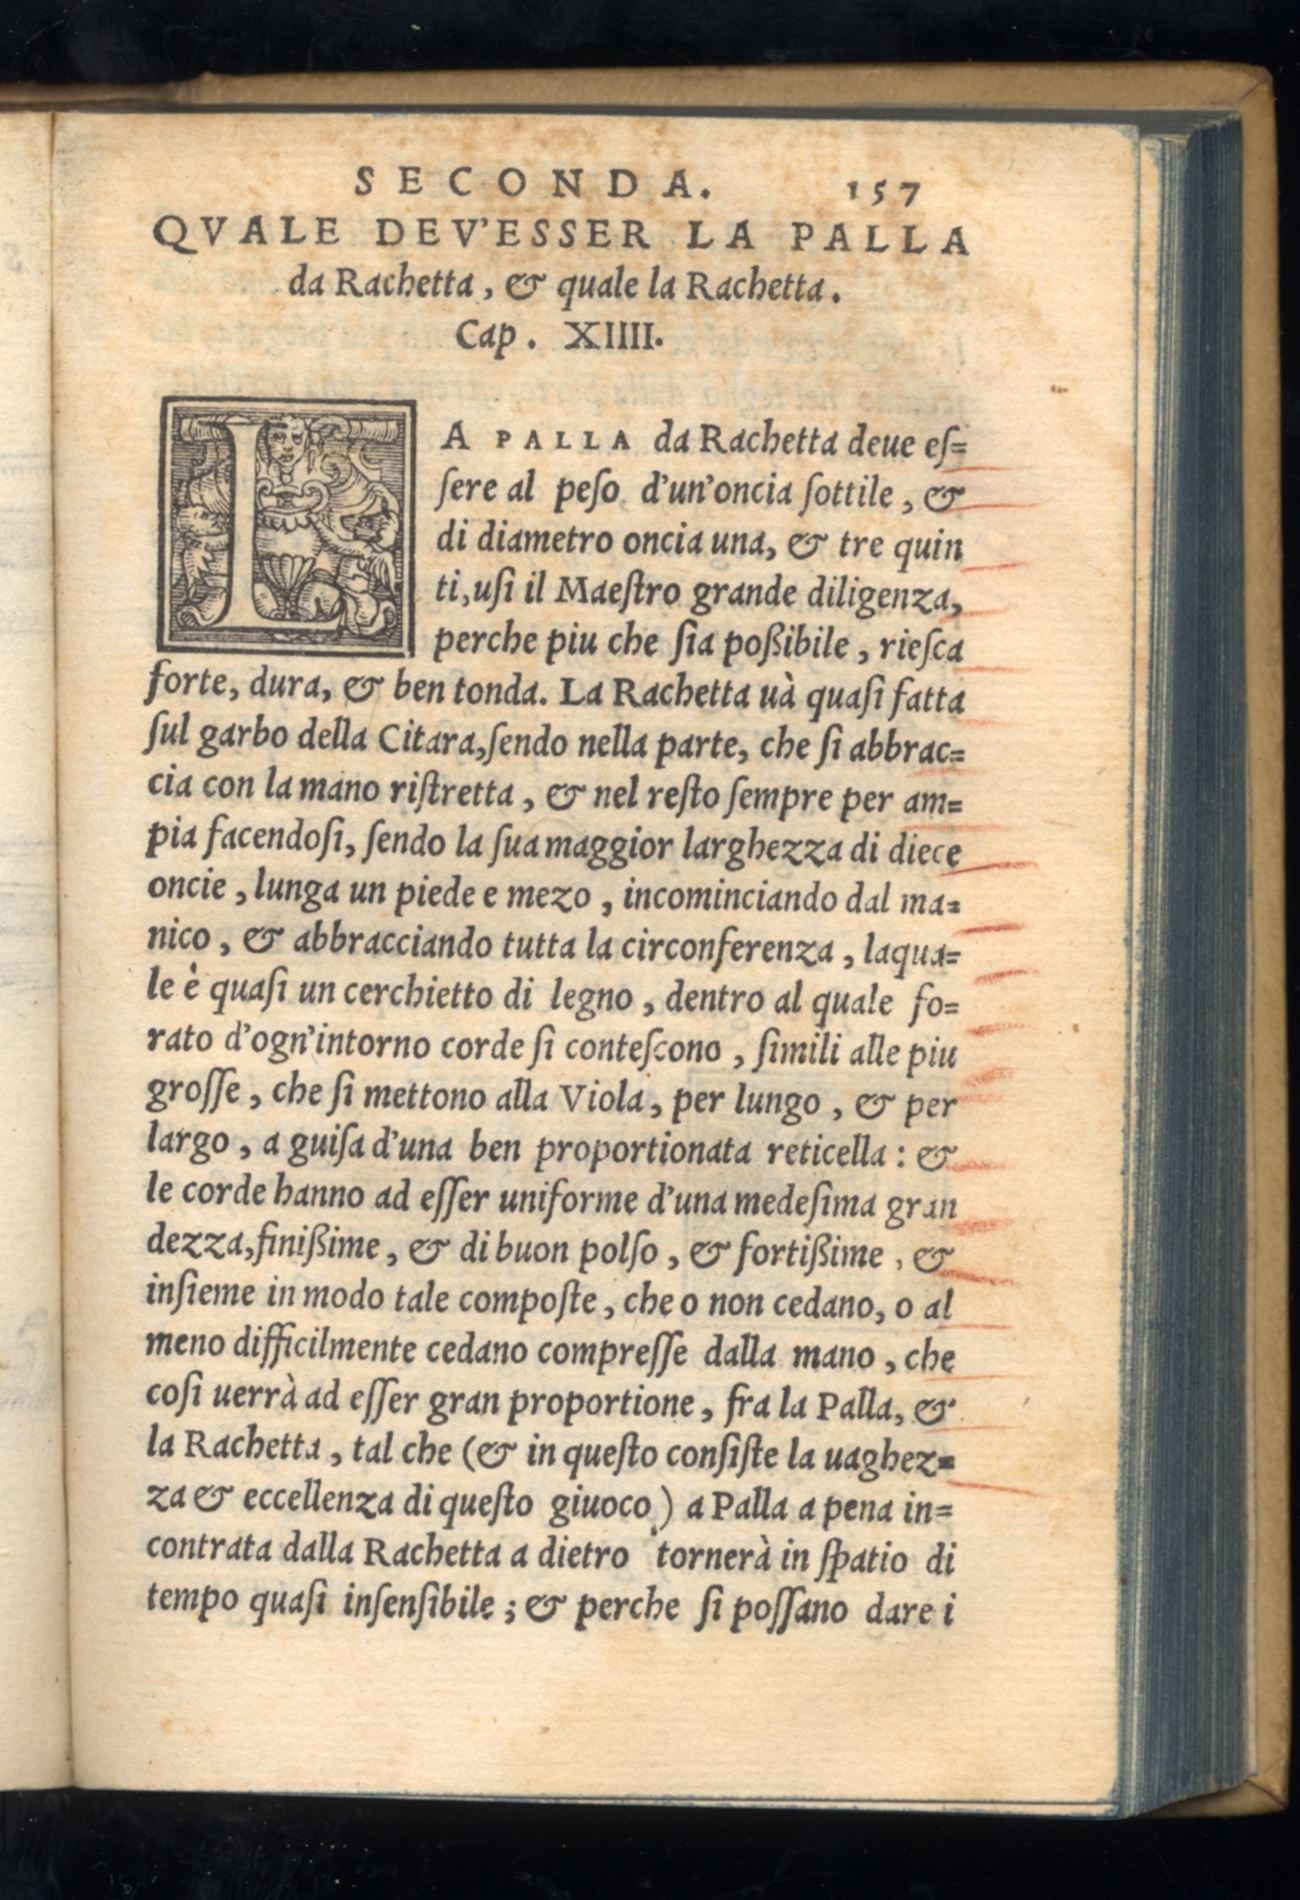 SECONDA. 157
QVALE DEV'ESSER LA PALLA
da Rachetta, & quale la Rachetta.
Cap. XIIII.
LA PALLA da Rachetta deue eſ=
ſere al peſo d'un'oncia ſottile, &
di diametro oncia una, & tre quin
ti, uſi il Maeſtro grande diligenza,
perche piu che ſia poßibile, rieſca
forte, dura, & ben tonda. La Rachetta uà quaſi fatta
ſul garbo della Citara, ſendo nella parte, che ſi abbrac=
cia con la mano riſtretta, & nel reſto ſempre per am=
pia facendoſi, ſendo la ſua maggior larghezza di diece
oncie, lunga un piede e mezo, incominciando dal ma=
nico, & abbracciando tutta la circonferenza, laqua=
le è quaſi un cerchietto di legno, dentro al quale fo=
rato d'ogn'intorno corde ſi conteſcono, ſimili alle piu
groſſe, che ſi mettono alla Viola, per lungo, & per
largo, a guiſa d'una ben proportionata reticella: &
le corde hanno ad eſſer uniforme d'una medeſima gran
dezza, finißime, & di buon polſo, & fortißime, &
inſieme in modo tale compoſte, che o non cedano, o al
meno difficilmente cedano compreſſe dalla mano, che
coſi uerrà ad eſſer gran proportione, fra la Palla, &
la Rachetta, tal che (& in queſto conſiſte la uaghez=
za & eccellenza di queſto giuoco) a Palla a pena in=
contrata dalla Rachetta a dietro tornerà in ſpatio di
tempo quaſi inſenſibile; & perche ſi poſſano dare i